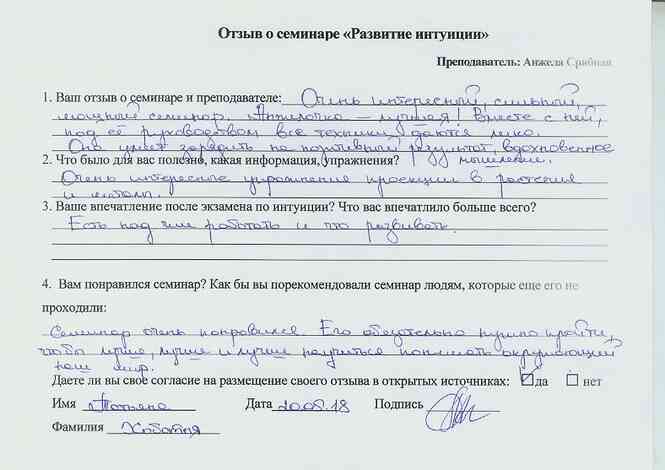 Отзыв о семинаре «Развитие интуиции»
Преподаватель: Анжела Срибная
1. Ваш отзыв о семинаре и преподавателе: Очень интересный, сильный,
мощный семинар. Анжелочка — лучшая! Вместе с ней,
под её руководством все техники даются легко.
Она умеет зарядить на позитивный результат, вдохновенное
2. Что было для вас полезно, какая информация, упражнения? мышление.
Очень интересное упражнение проекции в растения
и металл.
3. Ваше впечатление после экзамена по интуиции? Что вас впечатлило больше всего?
Есть над чем работать и что развивать.
4. Вам понравился семинар? Как бы вы порекомендовали семинар людям, которые еще его не
проходили:
Семинар очень понравился. Его обязательно нужно пройти,
чтобы лучше, лучше и лучше научиться понимать окружающий
нас мир.
Даете ли вы свое согласие на размещение своего отзыва в открытых источниках: да нет
Имя Татьяна Дата 20.08.18 Подпись
Фамилия